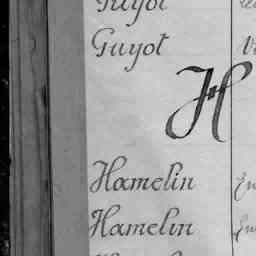 Guyot
Guyot
H
Hamelin
Hamelin